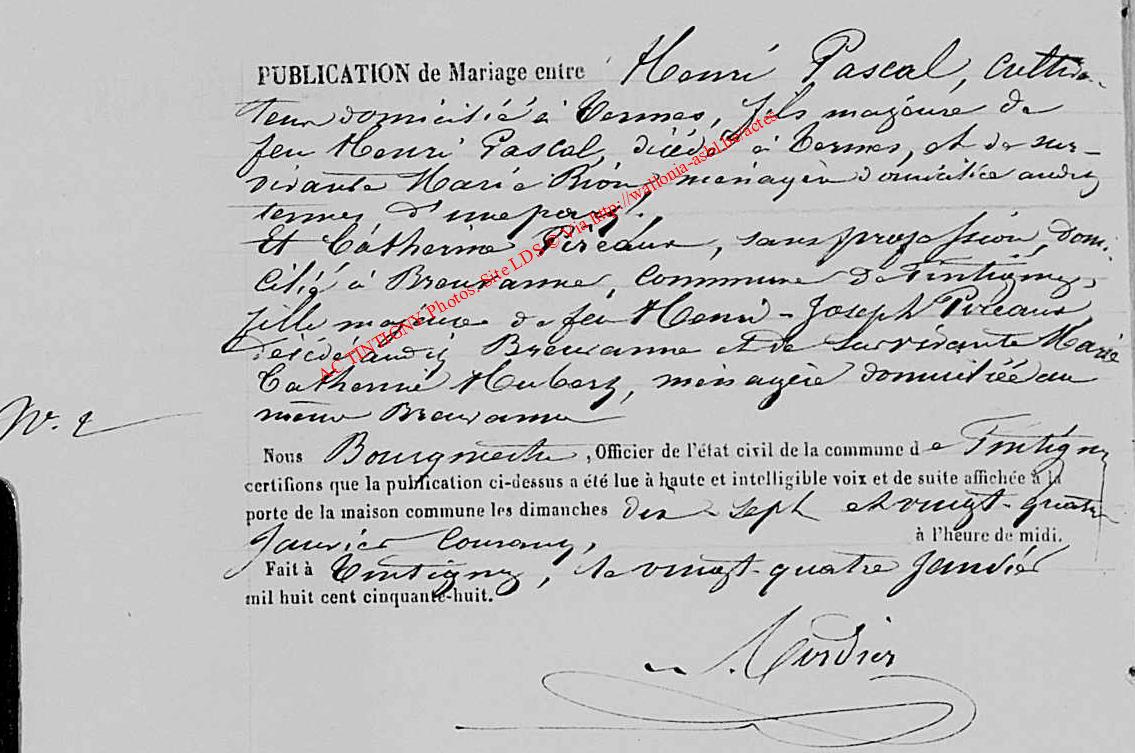 PUBLICATION de Mariage entre Henri Pascal, cultiva-
teur domicilié à Termes, fils majeure de
feu Henri Pascal, décédé à Termes, et de sur-
vivante Marie Rion, ménagère domiciliée audit
termes d'une part.
Et Catherine Pireaux, sans profession, domi-
cilié à Breuvanne, commune de Tintigny,
fille majeure de feu Henri-Joseph Pireaux,
décédé audit Breuvanne et de survivante Marie
Catherine Hubert, ménagère domiciliée au
même Breuvanne
N. 2
Nous Bourgmestre, Officier de l'état civil de la commune de Tintigny
certifions que la publication ci-dessus a été lue à haute et intelligible voix et de suite affichée à la
porte de la maison commune les dimanches dix-sept et vingt-quatre
Janvier Courant, à l'heure de midi.
Fait à Tintigny, le vingt-quatre Janvier
mil huit cent cinquante-huit.
AC TINTIGNY Photos: Site LDS © Via http://wallonia-asbl.be/actes